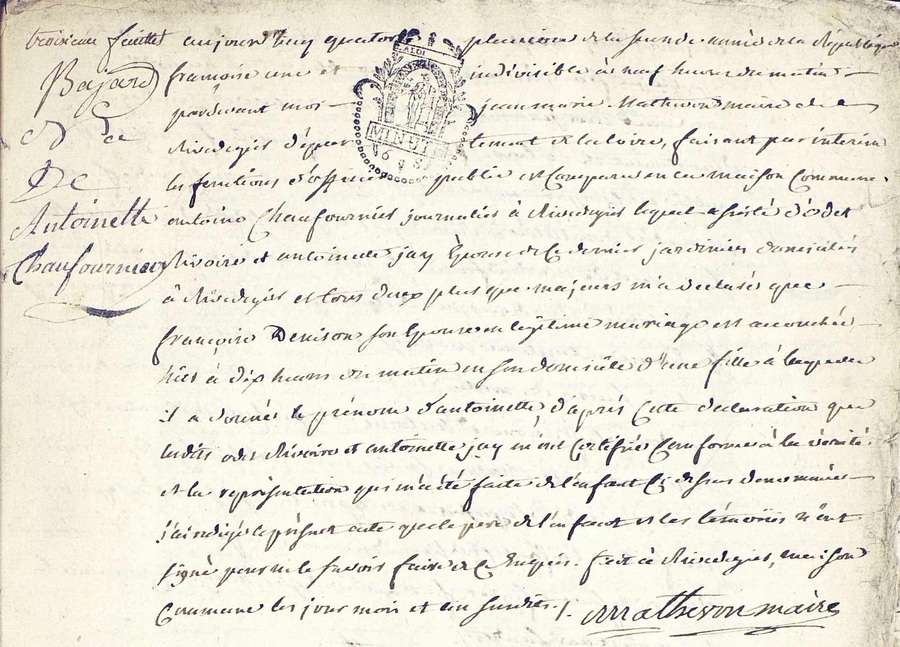 troisieme feuillet
Bajard
Nce
De
Antoinette
Chaufournier
aujourd'huy quatorze pluviose de la seconde année de la République
françoise une et indivisible à neuf heures du matin
pardevant moi jean marie Matheron maire de
Rivedegiés département de la Loire, faisant par interim
les fonctions d'officier public est comparu en la maison Commune
antoine Chaufournier journalier à Rivedegiés lequel assisté d'odet
Rivoire et antoinette jay Epouse de ce dernier jardinier domiciliés
à Rivedegiés et tous deux plus que majeurs m'a déclaré que
françoise Denison son Epouse en légitime mariage est accouchée
hier à dix heures du matin en son domicile d'une fille à laquelle
il a donné le prénom d'antoinette d'après cette declaration que
lesdits odet Rivoire et antoinette jay m'ont Certifiée Conforme à la vérité
et la représentation qui m'a été faite de l'enfant Cy dessus denommée
j'ai rédigé le présent acte que le pere de l'enfant et les témoins n'ont
signé pour ne le savoir faire de ce Enquis. fait à Rivedegiés, maison
Commune les jour mois et an susdits ./.
Matheron maire
LA LOI
MINUTE